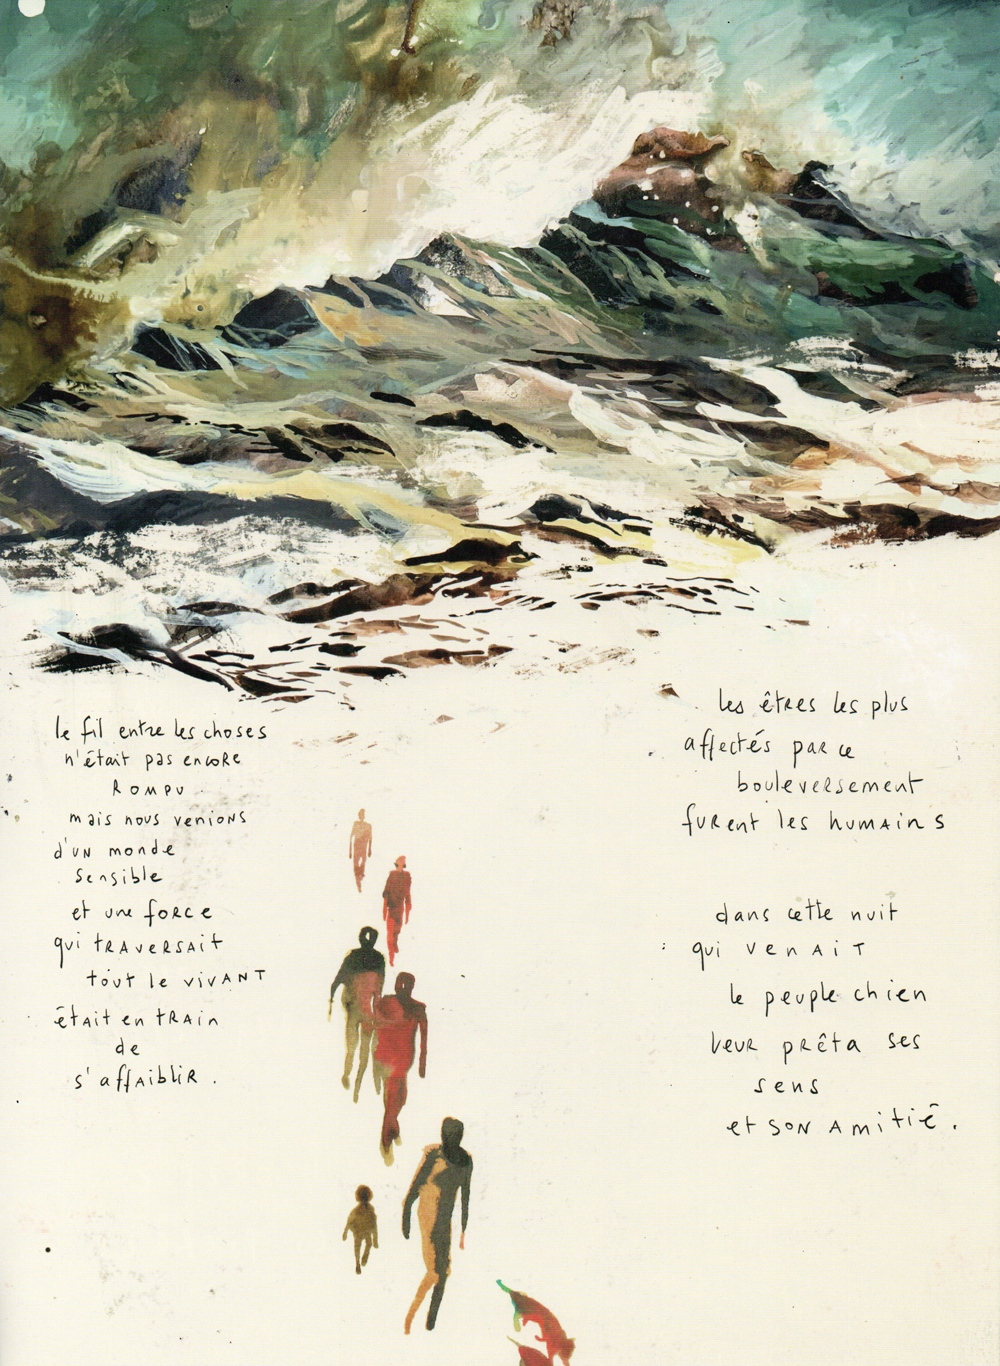 le fil entre les choses
n'était pas encore
ROMPU
mais nous venions
d'un monde
sensible
et une force
qui traversait
tout le vivant
était en train
de
s'affaiblir.
les êtres les plus
affectés par ce
bouleversement
furent les humains
dans cette nuit
qui venait
le peuple chien
leur prêta ses
sens
et son amitié.